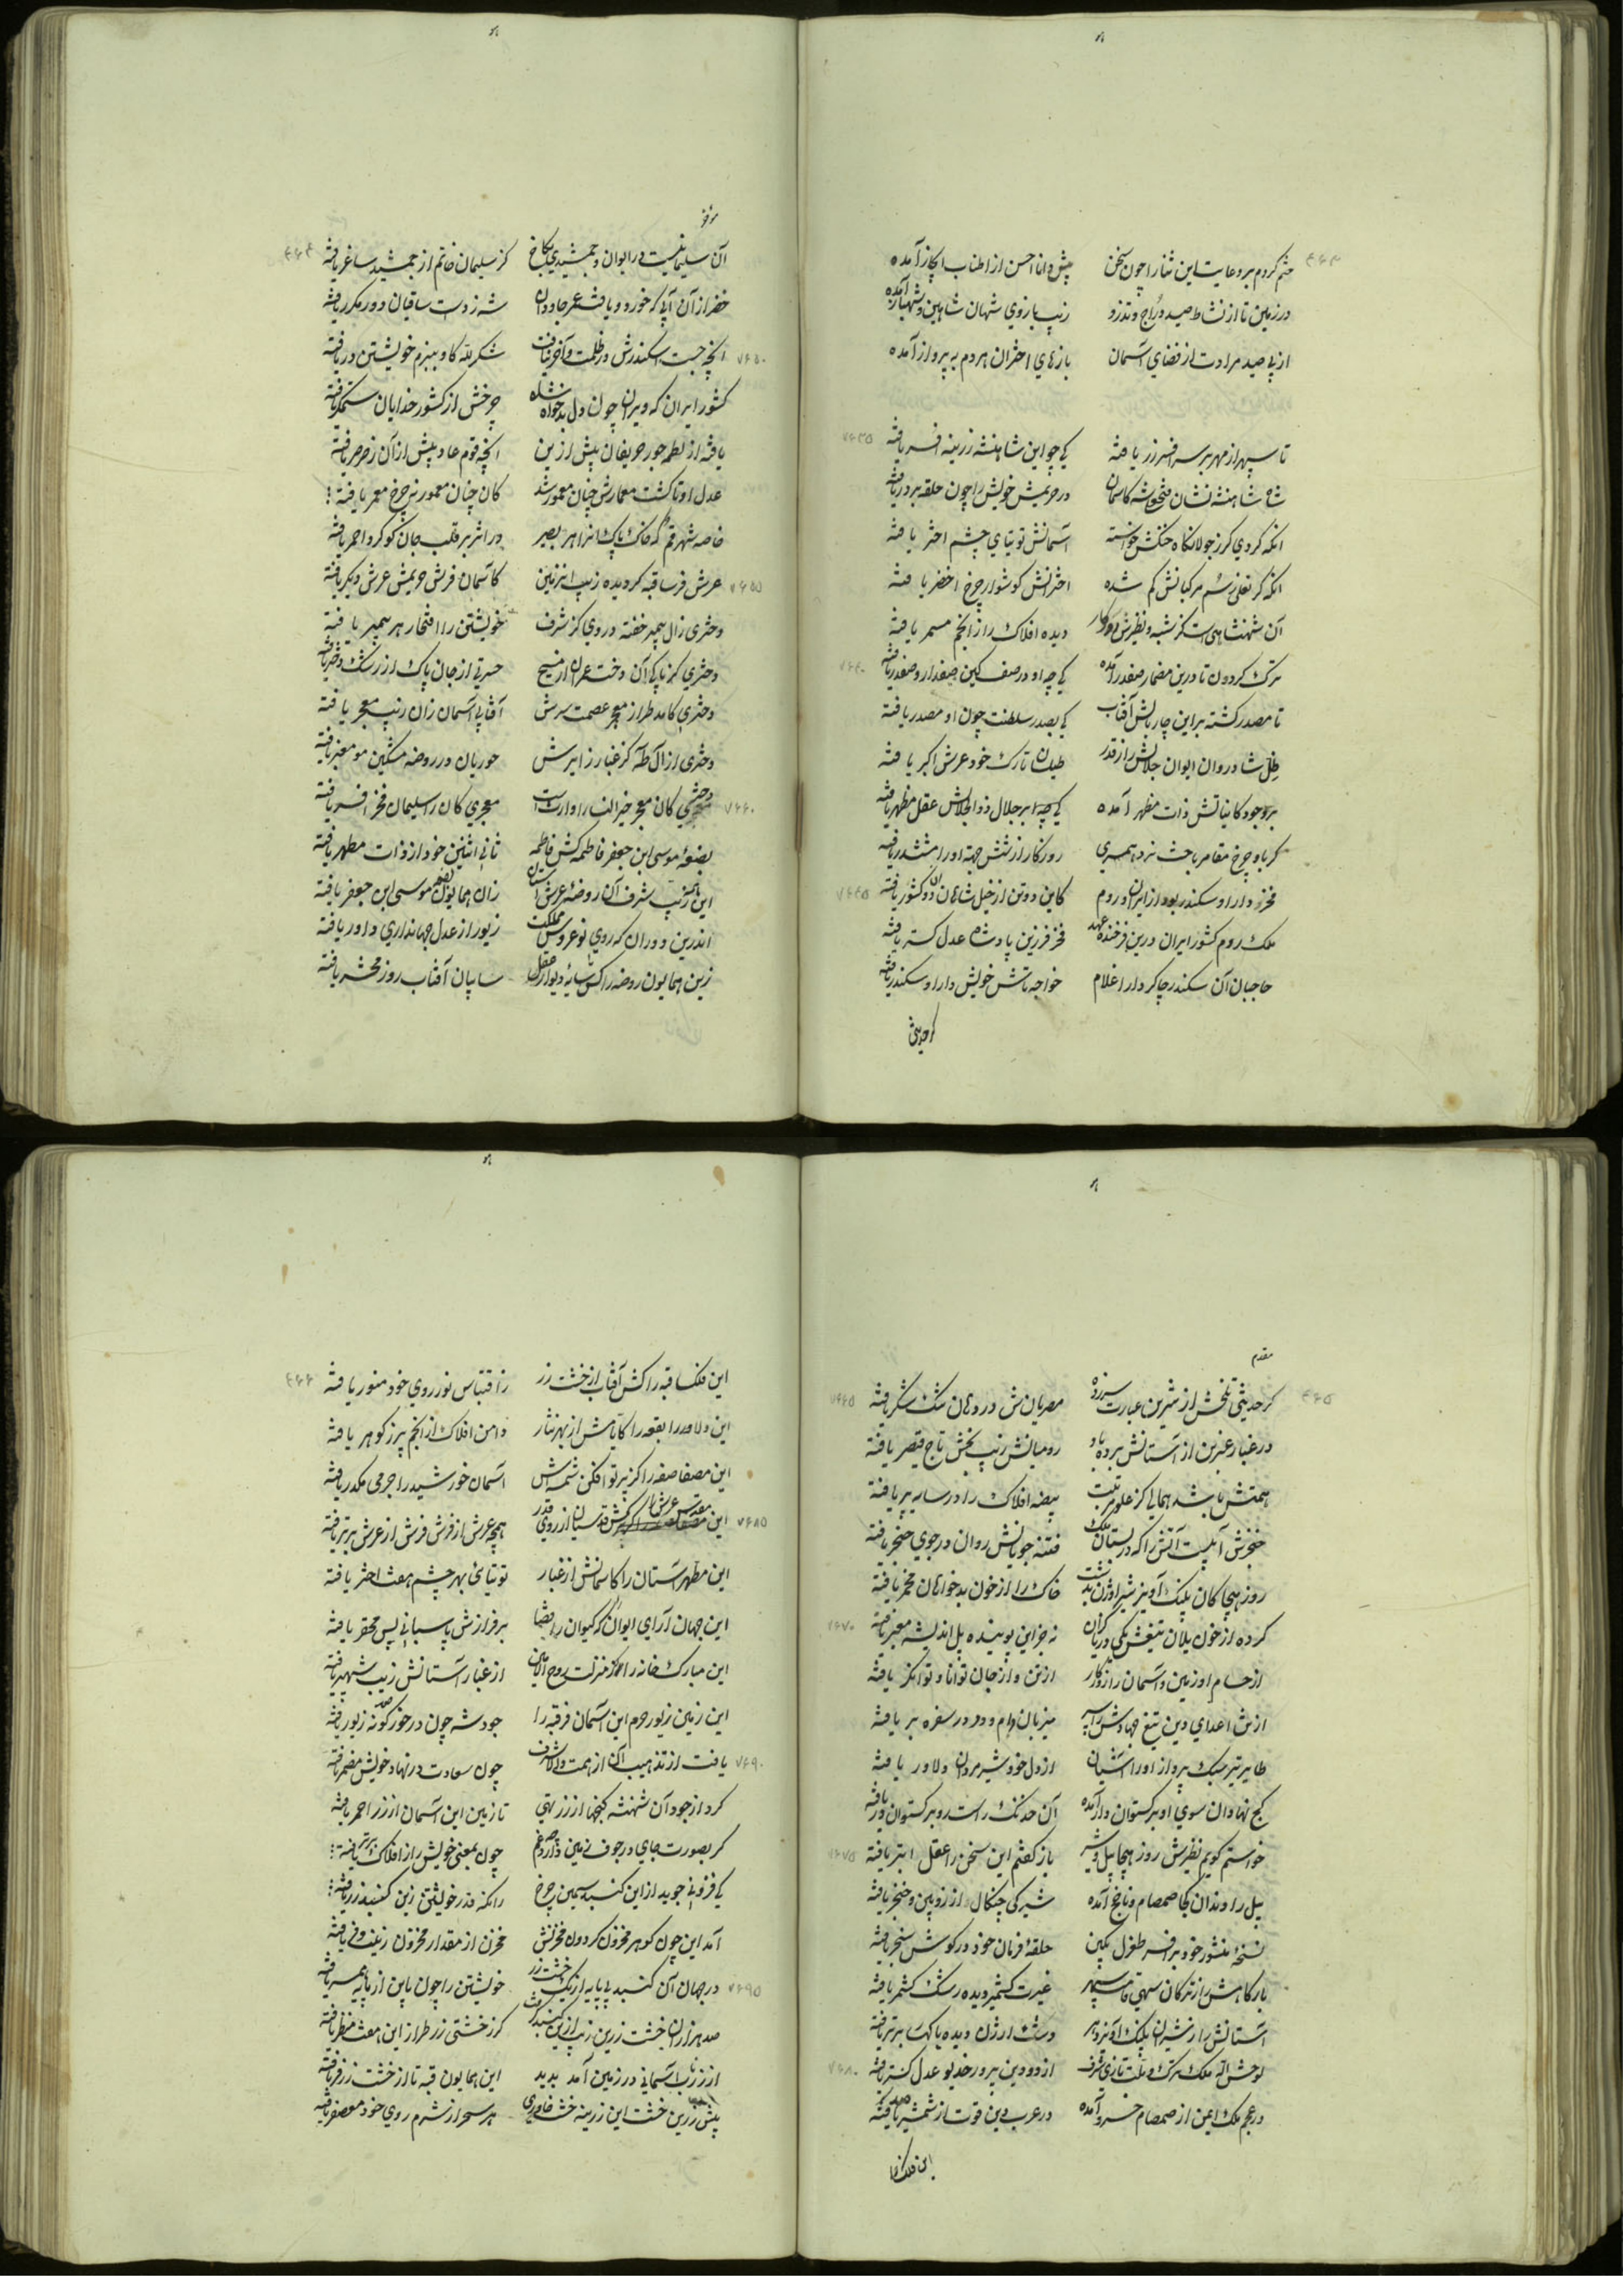 ختم کردم بر دعایت این ثنا را چون سخن پیش دانا احسن از اطناب ایجاز آمده
در زمین تا از نشاط صید دراج و تذرو زیب بازوی شهان شاهین و شهباز آمده
از پی صید مرادت از فضای آسمان بازهای اختران هر دم به پرواز آمده
تا سپهر از مهر بر سر افسر زر یافته کی چو این شاهنشه زرینه افسر یافته
شاه شاهنشه نشان فتحعلی شه کاسمان در حریمش خویش را چون حلقه بر در یافته
آنکه گردی کز جولانگاه خنگش خواسته آسمانش توتیای چشم اختر یافته
آنکه گر نعلی ز سم مرکبانش گم شده اخترانش گوشوار چرخ اخضر یافته
آن شهنشاهی است کز شبه و نظیرش روزگار دیده افلاک را ز انجم مسمر یافته
ترک گردون تا درین مضمار صفدر آمده کی چه او در صف کین صفدار و صفدر یافته
تا مصدر گشته بر این چار بالش آفتاب کی بصدر سلطنت چون او مصدر یافته
ظل شادروان ایوان جلالش را ز قدر طیلسان تارک خود عرش اکبر یافته
بر وجود کایناتش ذات مظهر آمده کی چه او بر جلال ذوالجلالش عقل مظهر یافته
گر باو چرخ مقامر باخت نرد همسری روزگار از شش جهة او را مششدر یافته
فخر دارا و سکندر بود از ایران و روم کاین دو تن از خیل شاهان آن دو کشور یافته
ملک روم کشور ایران درین فرخنده عهد فخر فر زین پادشاه عدل گستر یافته
حاجبان آن سکندر چاکر دارا غلام خواجه تاش خویش دارا و سکندر یافته
گر حدیثی
مؤخر
آن سلیمانیست در ایوان و جمشیدی بکاخ کز سلیمان خاتم از جمشید ساغر یافته
خضر از آن آبی که خورد و یافت عمر جاودان شه ز دست ساقیان دور مکرر یافته
آنچه جست اسکندرش در ظلمت و آخر نیافت شکر لله کاو ببزم خویشتن در یافته
کشور ایران که ویران چون دل بدخواه شاه چرخش از کشور خدایان ستمگر یافته
یافته از لطمه جور حریفان پیش ازین آنچه قوم عاد پیش از آن ز صرصر یافته
عدل او تا گشت معمارش چنان معمور شد کان چنان معمور نی چرخ معمر یافته
خاصه شهر قم که خاک پاک آنرا هر بصیر در اثر بر قلب جان گوگرد احمر یافته
عرش فرسا قبه گردیده زیب این زمین کاسمان فرش حریمش عرش دیگر یافته
دختری زال پیمبر خفته در وی کز شرف خویشتن را افتخار هر پیمبر یافته
دختری کز پاکی آن دخت عمران از مسیح حسرتی از جان پاک از رشک دختر یافته
دختری کامد طراز معجر عصمت سرش آفتابی آسمان زان زیب معجر یافته
دختری از آل طه کز غبار زایرش حوریان در روضه مشکین مو معنبر یافته
دختری کان معجر خیر النسا را وارث است معجری کان را سلیمان فخر افسر یافته
بضعهٔ موسی ابن جعفر فاطمه کش فاطمه ثانی اثنین خود از ذات مطهر یافته
این زمین زیب شرف آن روضهٔ عرش آستان زان همایون بضعهٔ موسی ابن جعفر یافته
اندرین دوران که روی نوعروس مملکت زیور از عدل جهانداری داور یافته
زین همایون روضه را کش سایهٔ دیوار عقل سایبان آفتاب روز محشر یافته
مقدم
گر حدیثی تلخش از شیرین عبارت سر زده مصریان ش در دهان تنگ شکر یافته
در غبار عنبرین از آستانش برده باد رومیانش زیب بخش تاج قیصر یافته
همتش باشد همایی کز علو مرتبت بیضه افلاک را در سایه پر یافته
خنجرش آبیست آتش زا که در بستان ملک فتنه جویانش روان در جوی خنجر یافته
روز هیجا کان پلنگ آویز شیر اوژن بدشت خاک را از خون بدخواهان مخمر یافته
کرده از خون یلان تیغش یکی دریا کزان نه جز این پوینده پل اندیشه معبر یافته
از حسام او زمین و آسمان را روزگار از تن و از جان توانا و توانگر یافته
از تن اعدای دین تیغ جهادش را سپهر میزبان دام و دد در سفره بر یافته
طایر تیر سبک پرواز او را آشیان از دل خود شیر مردان دلاور یافته
کج نهادان سوی او برگستوان دار آمده آن خدنگ راست رو برگستوان ور یافته
خواستم گویم نظیرش روز هیجا پیل و شیر باز گفتم این سخن را عقل ابتر یافته
پیل را دندان کجا صمصام و ناخج آمده شیر کی چنگال از زوپین و خنجر یافته
نسخهٔ منشور خود بر افسر طغرل تکین حلقهٔ فرمان خود در گوش سنجر یافته
بارگاهش از ترکان سهی قامت سپهر غیرت کشمیر دیده رشک کشمر یافته
آستانش را ز شیران پلنگ آویز دهر دشت ارژن دیده یا کهسار بربر یافته
لوحش الله ملک ترک و ملت تازی شرف از دو دین پرور خدیو عدل گستر یافته
در عجم ملک ایمن از صمصام خسرو آمده در عرب دین قوت از شمشیر حیدر یافته
این فلک فرسا
این فلک سا قبه را کش آفتاب از خشت زر ز اقتباس نور روی خود منور یافته
این دلاور را بقعه را کایامش از بهر نثار دامن افلاک از انجم پر ز گوهر یافته
این مصفا صفه را کز پرتو افکن شمسه‌اش آسمان خورشید را جرمی مکدر یافته
این مقدس عرش را کش قدسیان از روی قدر همچو عرش از فرش فرش از عرش برتر یافته
این مطهر آستان را کاسمانش از غبار توتیائی بهر چشم هفت اختر یافته
این جهان آرای ایوان که کیوان را قضا بر فرازش پاسبانی بس محقر یافته
این مبارک خانه را کز منزلت روح الامین از غبار آستانش زیب شهپر یافته
این زمین زیور حرم این آسمان فر قبه را جود شه چون در خور صد گونه زیور یافته
یافت از تذهیب آن از همت والا شرف چون سعادت در نهاد خویش مضمر یافته
کرد از جود آن شهنشه گنجها از زر تهی تا زمین این آسمان از زر احمر یافته
گر بصورت جای در جوف زمین دارد چه غم چون بمعنی خویش را ز افلاک برتر یافته
کی فزونی جوید از این گنبد سیمین چرخ زانکه قدر خویشتن زین گنبد زر یافته
آمد این چون گوهر مخزون گردون مخزنش مخزن از مقدار مخزون زینت و فر یافته
در جهان آن گنبد بی پایه از یک خشت زر خویشتن را چون باین از پایه همسر یافته
صد هزاران خشت زرین زیب ازین گنبد گرفت کز خشتی زر طراز این هفت منظر یافته
از زر ناب آسمانی در زمین آمد پدید این همایون قبه تا از خشت زر فر یافته
پیش زرین خشت این زرینه خشت خاوری هر سحر از شرم روی خود معصفر یافته